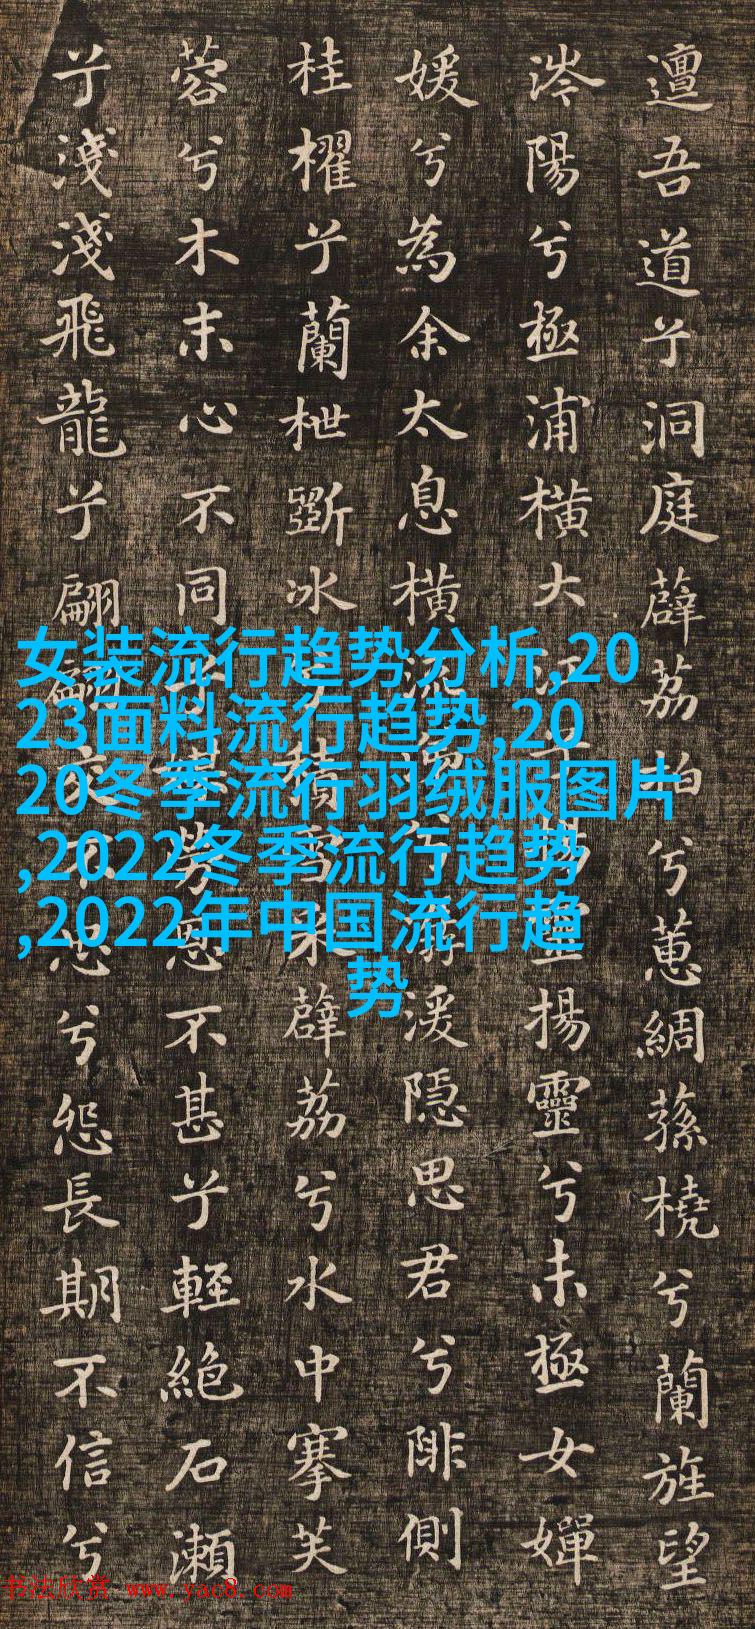 邅吾道兮洞庭薜荔拍兮蕙綢蓀橈兮蘭旌望
涔陽兮極浦橫大江兮揚靈揚靈兮未極女嬋
媛兮為余太息橫流涕兮潺湲隱思君兮陫側
桂櫂兮蘭枻斲冰兮積雪采薜荔兮水中搴芙
蓉兮木末心不同兮媒勞恩不甚兮輕絕石瀨
兮淺淺飛龍兮翩翩交不忠兮怨長期不信兮
女装流行趋势分析,20
23面料流行趋势,20
20冬季流行羽绒服图片
,2022冬季流行趋势
,2022年中国流行趋
势
书法欣赏 www.yac8.com